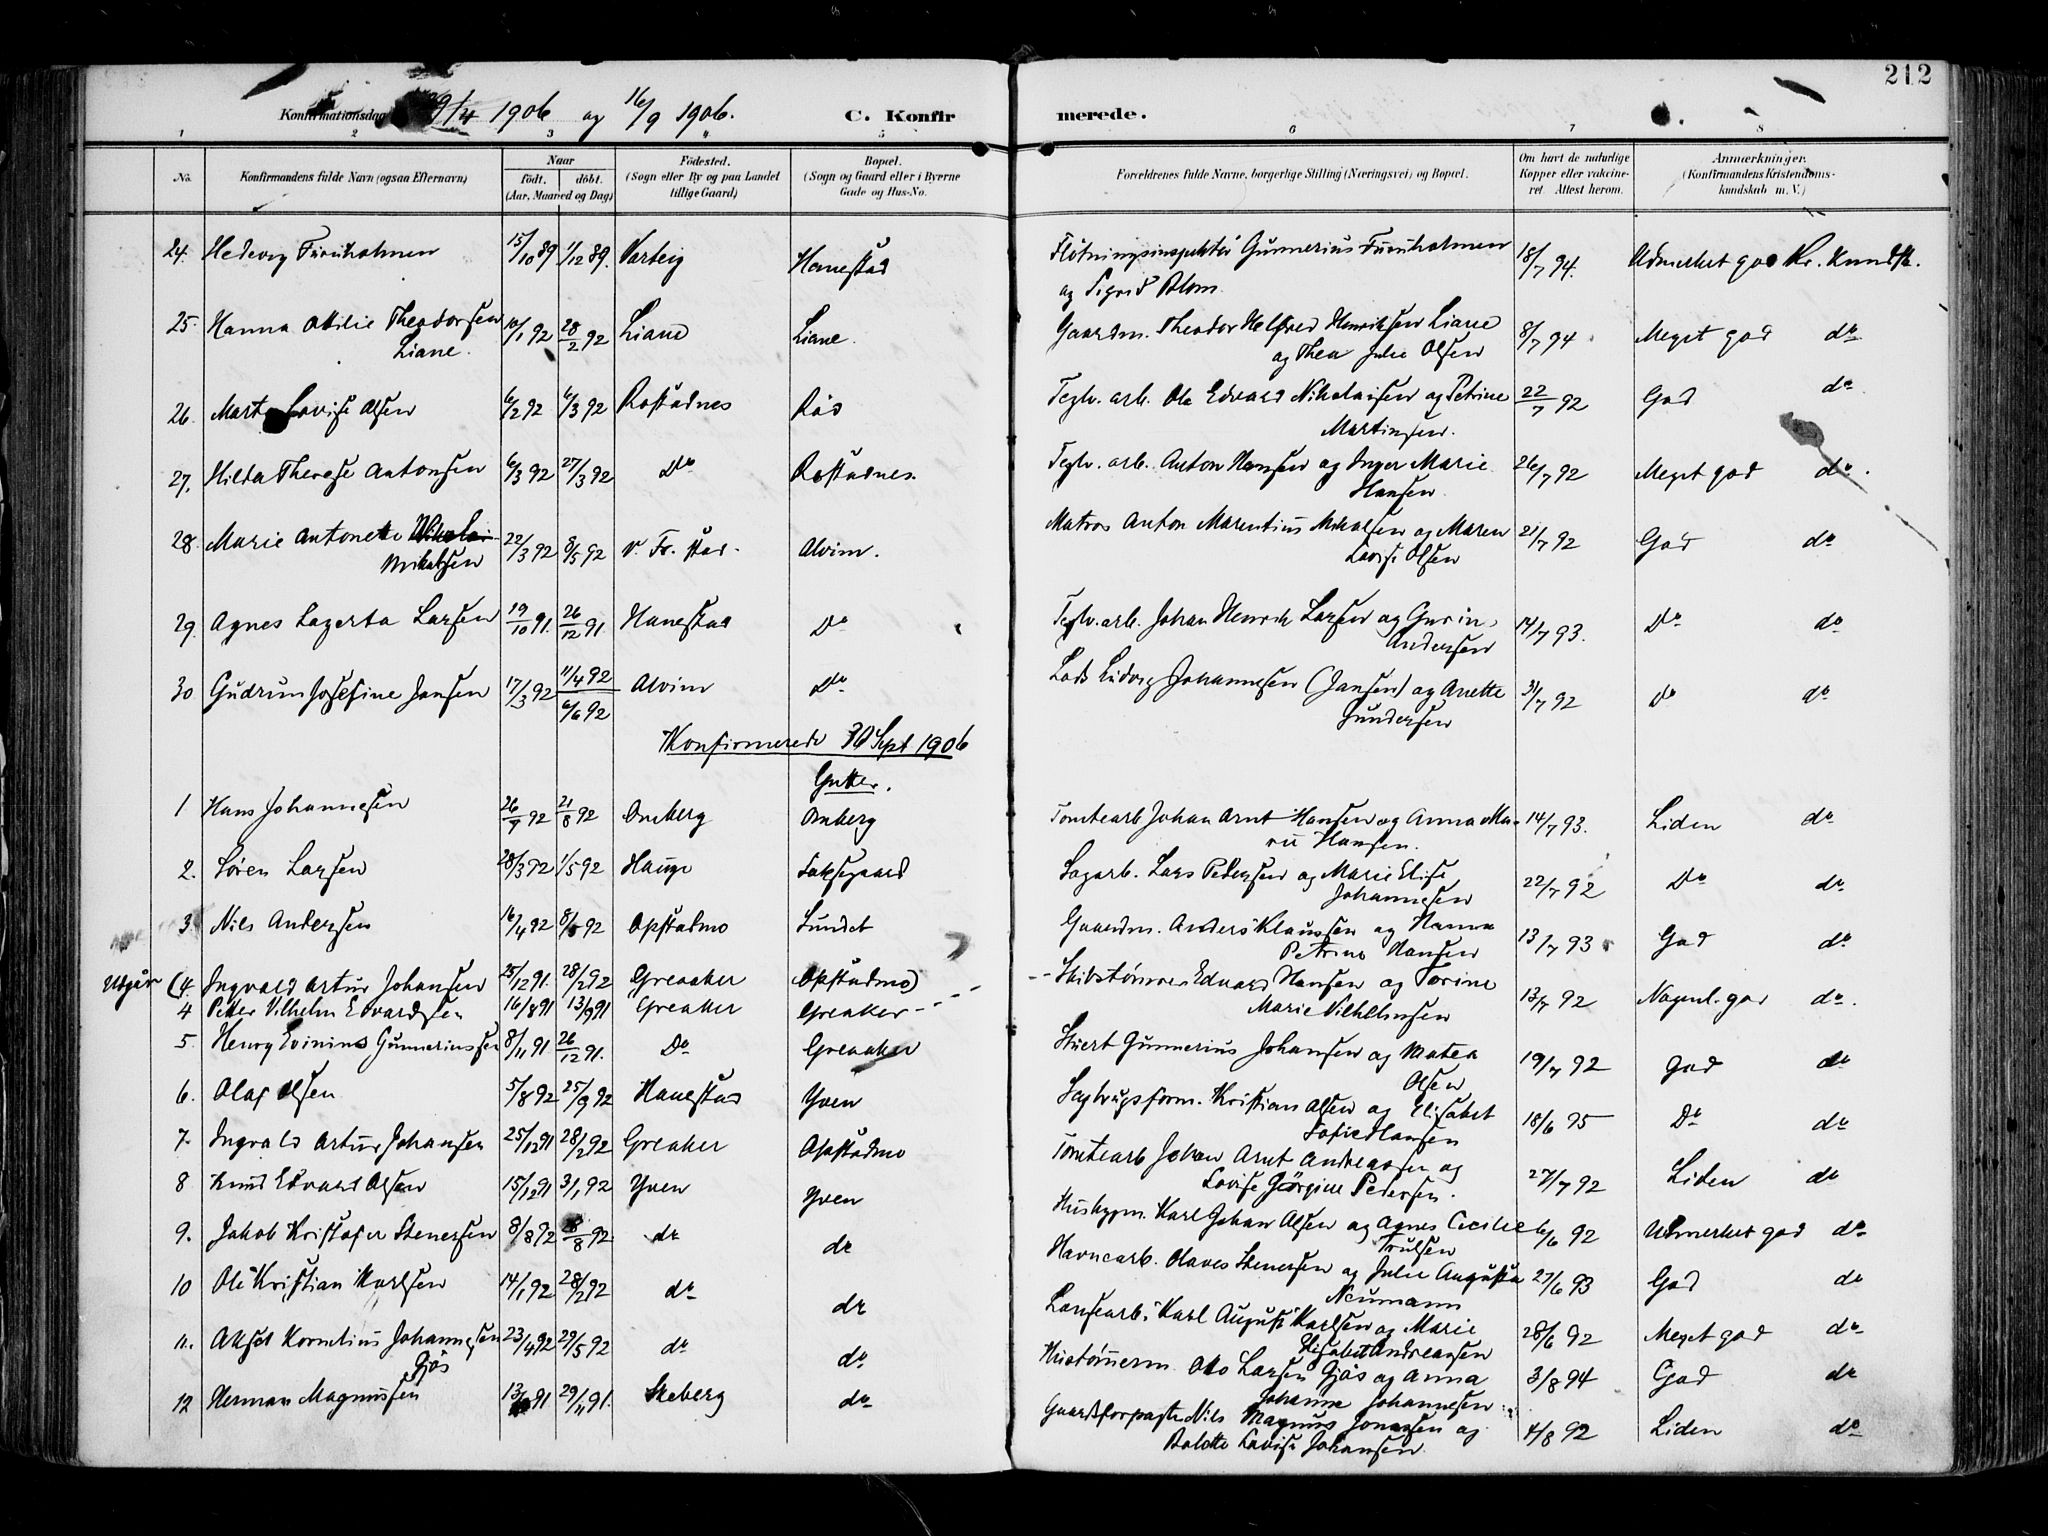 212
Konfirmationsdag 29/4 1906 og 16/9 1906. C. Konfirmerede.
1 2 3 4 5 6 7 8
No. Konfirmandens fulde Navn (ogsaa Efternavn) Naar født. døbt. (Aar, Maaned og Dag) Födested. (Sogn eller By og paa Landet tillige Gaard) Bopæl. (Sogn og Gaard eller i Byerne Gade og Hus-No. Forældrenes fulde Navne, borgerlige Stilling (Næringsvei) og Bopæl. Om havt de naturlige Kopper eller vakcineret. Attest herom. Anmærkninger. (Konfirmandens Kristendomskundskab m. V.)
24. Hedevig Furuholmen 15/10 89 1/12 89. Varteig Hanestad Fløtningsinspektør Gunnerius Furuholmen 18/7 94. Udmerket god Kr. Kundsk.
og Sigrid Blom
25. Hanna Otilie Theodorsen 10/1 92 28/2 92 Liane Liane. Gaardm. Theodor Helfred Henriksen Liane 8/7 94 Meget god do
Liane. og Thea Julie Olsen
26. Marta Lovise Olsen 6/2 92 6/3 92 Rostadnes Rös Teglv. arb. Ole Edvard Nikolaisen og Petrine 22/7 92 God do
Martinsen.
27. Hilda Therese Antonsen 6/3 92 27/3 92 Do Rostadnes. Teglv. arb. Anton Hansen og Inger Marie 26/7 92 Meget god do.
Hansen
28. Marie Antonette Nikolai- 22/3 92 8/5 92 v. Fr. stad. Alvim. Matros Anton Marentius Mikalsen og Maren 21/7 92 God do
Mikalsen Lovise Olsen
29. Agnes Lagerta Larsen 19/10 91. 26/12 91. Hanestad Do Teglv. arb. Johan Henrik Larsen og Gurin 14/7 93. Do do
Andersen
30 Gudrun Josefine Jansen 17/3 92 11/4 92 Alvim Do Lods Ludvig Johannesen (Jansen) og Anette 31/7 92 Do do
6/6 92 Gundersen
Konfirmerede 30 Sept 1906
Gutter.
1 Hans Johannesen 26/7 92 21/8 92 Omberg Omberg Tomtearb Johan Arnt Hansen og Anna Ma- 14/7 93. Liden do
rie Hansen.
2. Søren Larsen 28/3 92 1/5 92 Hauge Taksegaard Sagarb. Lars Pedersen og Marie Elise 22/7 92 Do do
Johannesen
3. Nils Andersen 16/4 92 8/5 92 Opstadmo Sundet Gaardm. Anders Klaussen og Hanna 13/7 93 God do
Petrine Hansen
Udgår (4. Ingvald Artur Johansen 25/12 91. 28/2 92 Greaaker Opstadmo)
4 Petter Vilhelm Edvardsen 16/8 91 13/9 91 Greaker Greaker Skibstømrer Edvard Hansen og Torine 13/7 92 Nogenl. god do.
Marie Vilhelmsen
5. Henry Evinius Gunneriussen 8/11 91 26/12 91. Do Greaaker Stuert Gunnerius Johansen og Matea 19/7 92 God do
Olsen
6. Olaf Olsen 5/8 92 25/9 92 Hanestad Yven Sagbrugsform. Kristian Olsen og Elisabet 18/6 95 Do do
Sofie Hansen
7. Ingvald Artur Johansen 25/12 91 28/2 92 Greaker Opstadmo Tomtearb Johan Arnt Andreassen og 27/7 92 Liden do
Lovise Jörgine Pedersen.
8 Knud Edvard Olsen 15/12 91 3/1 92 Yven Yven Huskypm. Karl Johan Olsen og Agnes Cecilie 6/6 92 Udmerket god do
Trulsen
9. Jakob Kristofer Stenersen 8/8 92 28/8 92 do do Havnearb. Olaves Stenersen og Julie Augusta 27/6 93 God do
Neumann
10 Ole Kristian Karlsen 14/1 92 28/2 92 do do Lonsearb. Karl August Karlsen og Marie 28/6 92 Meget god do
Elisabet Andreasen
11. Aksel Kornelius Johannesen 23/4 92 29/5 92 do do Hustømrerm. Otto Larsen Gjös og Anna 3/8 94 God do
Gjös Johanne Johannesen
12 Herman Magnussen 91 29/11 91. Skeberg do Gaardsforpagter Nils Magnus Jonassen og 4/8 92 Liden do
Bolette Lovise Johansen.